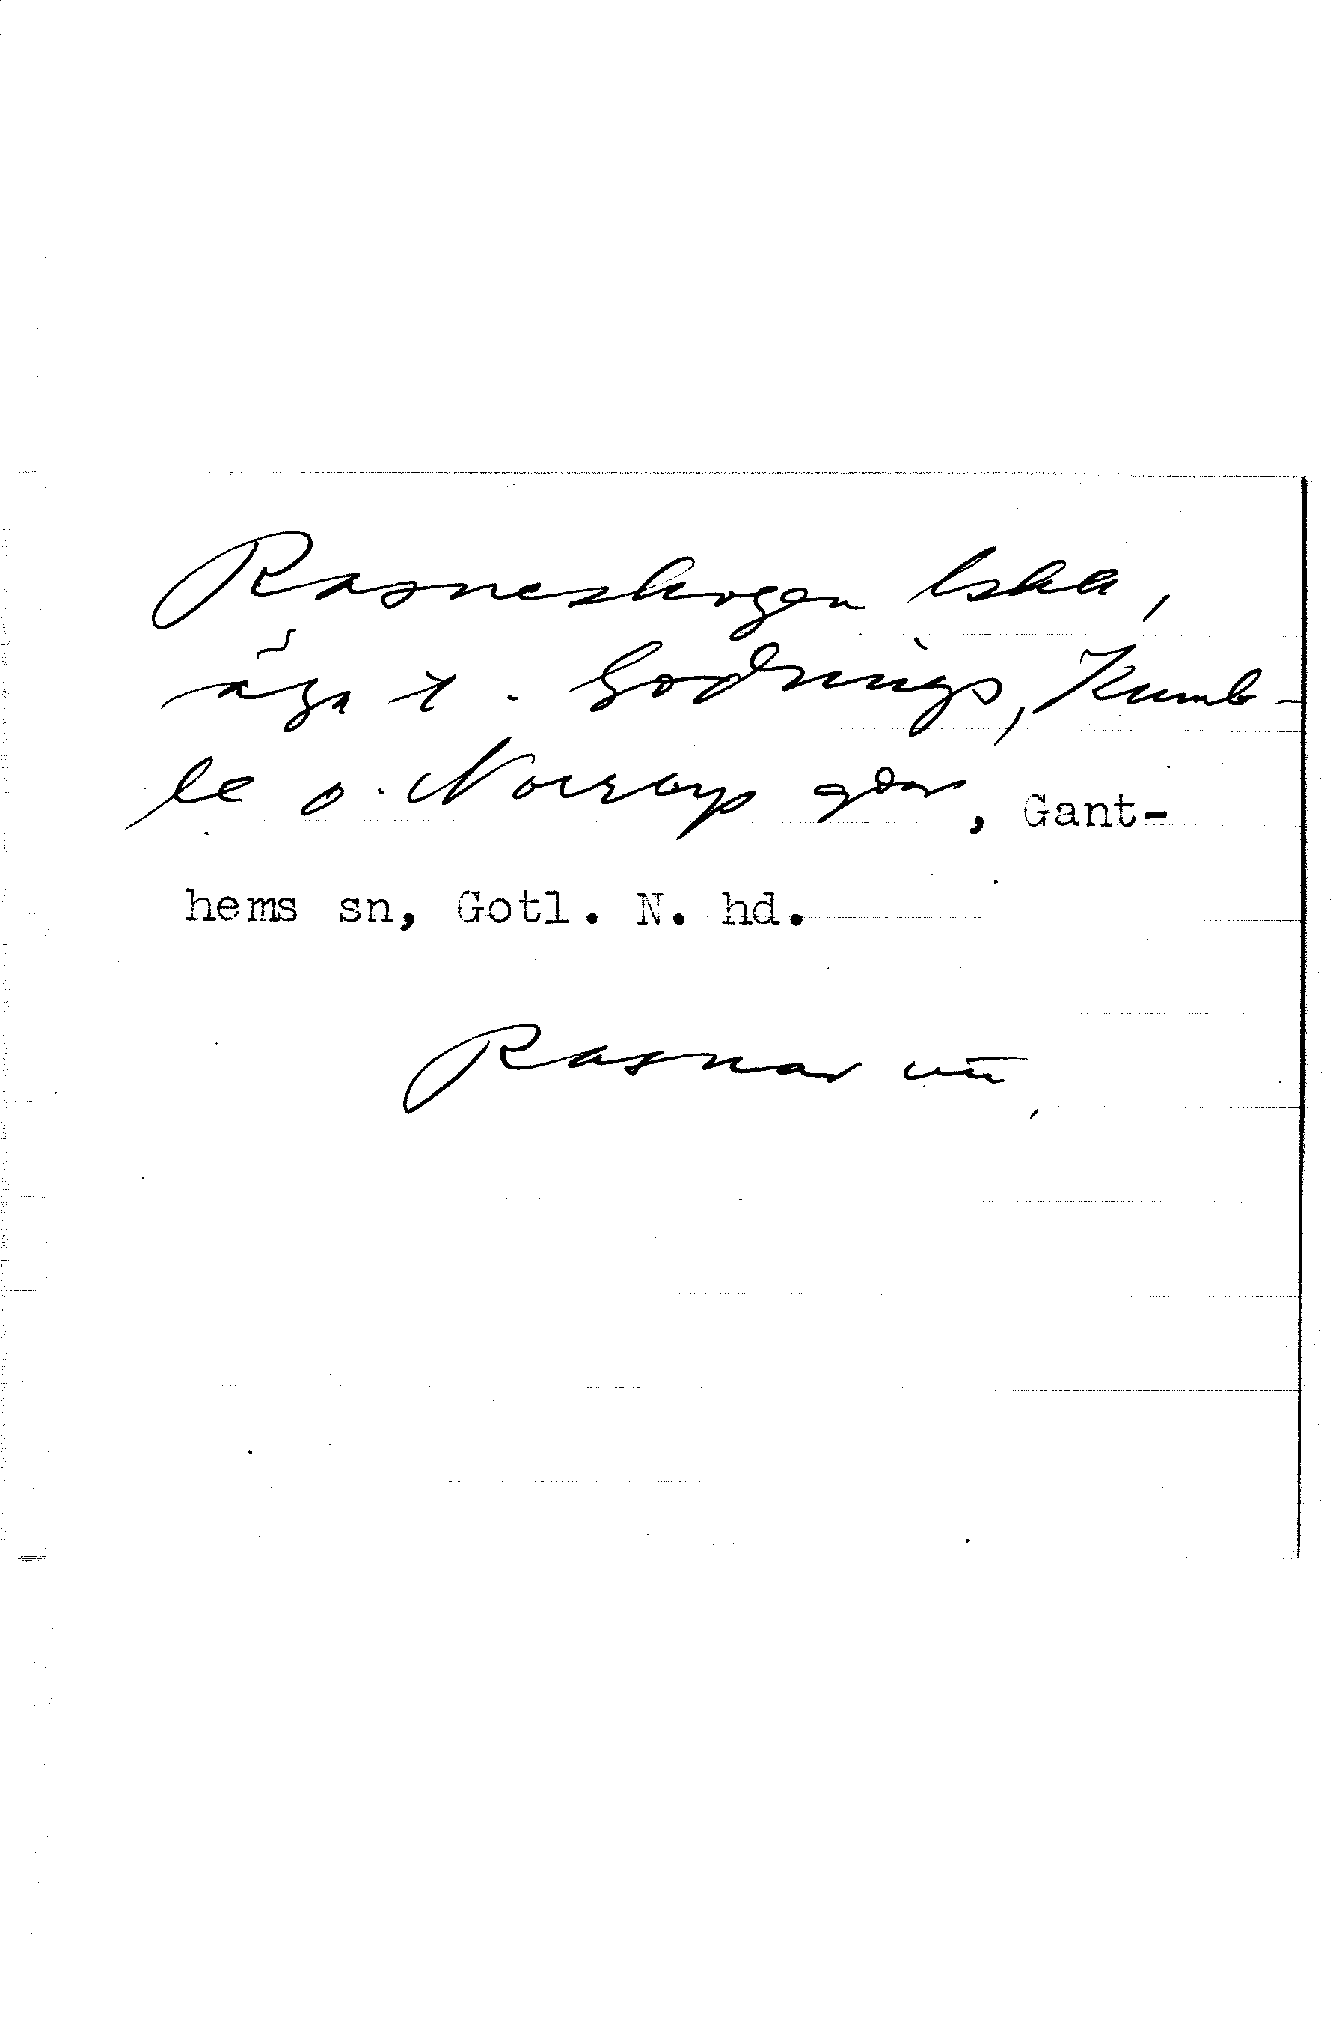 Rasneskogen lska,
äga t. Godrings, Kumb-
le o. Norrbys gdar, Gant-
hems sn, Gotl. N. hd.
Rasnar